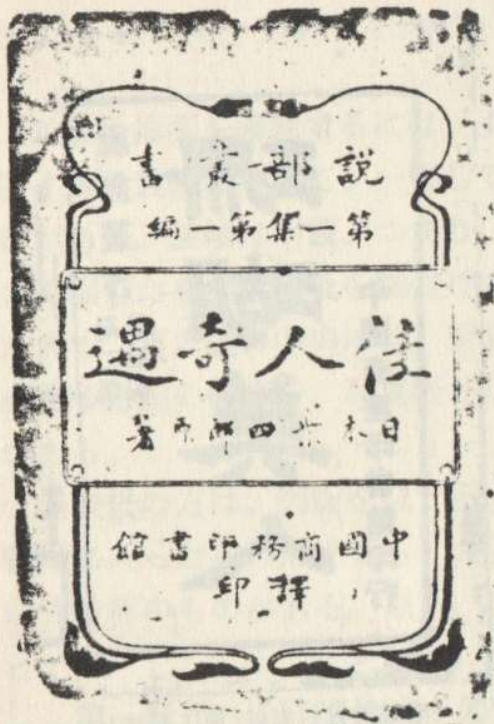 說部叢書
第一集第一編
佳人奇遇
日本柴四郎原著
中國商務印書館
擇印